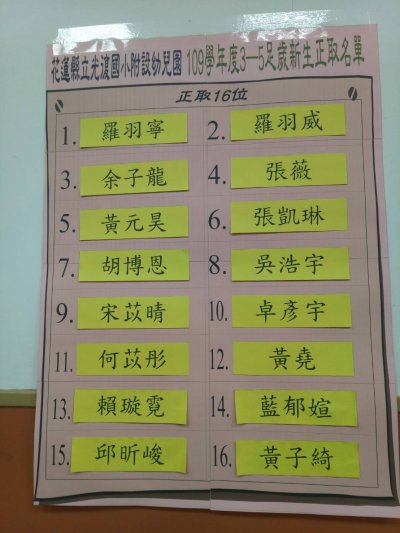 花蓮縣立光復國小附設幼兒園 109學年度3—5足歲新生正取名單
正取16位
1. 羅羽寧 2. 羅羽威
3. 余子龍 4. 張薇
5. 黃元昊 6. 張凱琳
7. 胡博恩 8. 吳浩宇
9. 宋苡晴 10. 卓彥宇
11. 何苡彤 12. 黃堯
13. 賴璇霓 14. 藍郁媗
15. 邱昕峻 16. 黃子綺